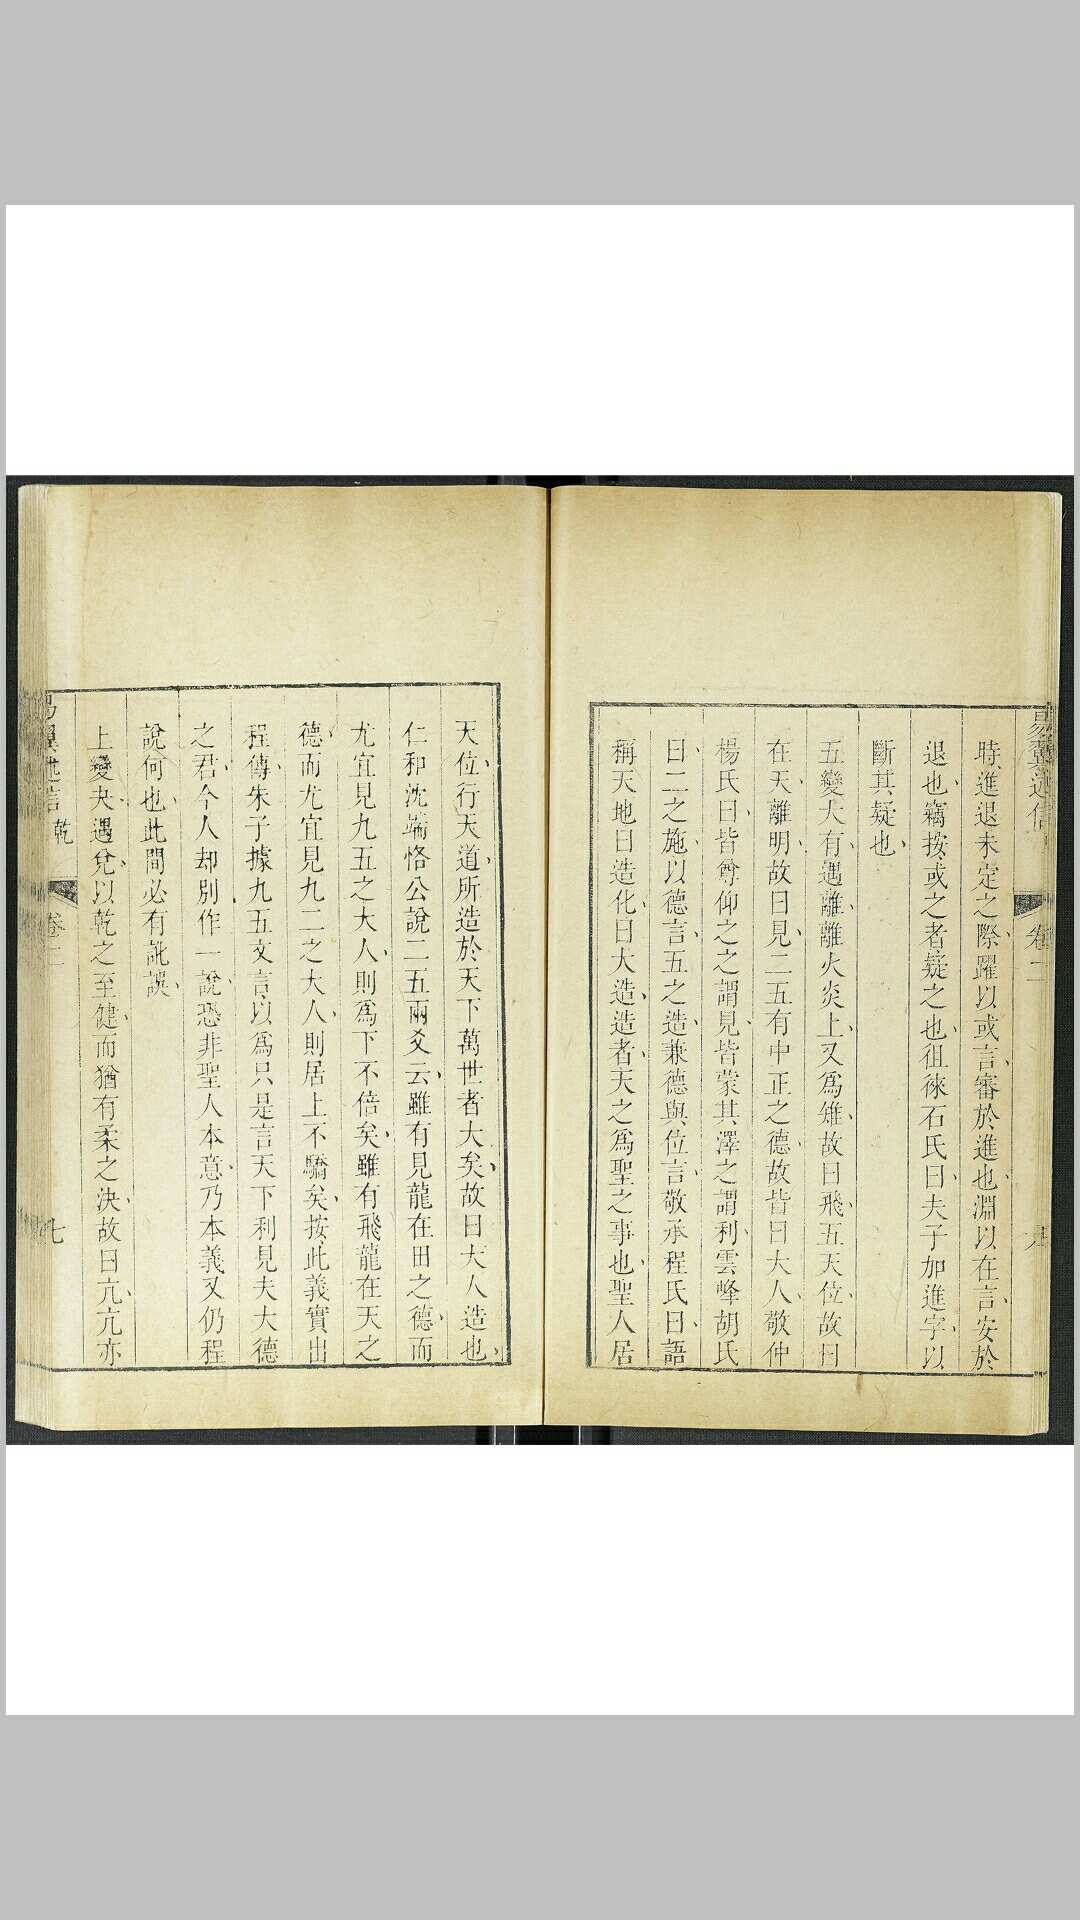 易翼述信
卷二
六
時進退未定之際躍以或言審於進也淵以在言安於
退也竊按或之者疑之也徂徠石氏曰夫子加進字以
斷其疑也
五變大有遇離離火炎上又爲雉故曰飛五天位故曰
在天離明故曰見二五有中正之德故皆曰大人敬仲
楊氏曰皆尊仰之之謂見皆蒙其澤之謂利雲峰胡氏
曰二之施以德言五之造兼德與位言敬承程氏曰語
稱天地曰造化曰大造造者天之爲聖之事也聖人居
天位行天道所造於天下萬世者大矣故曰大人造也
仁和沈端恪公說二五兩爻云雖有見龍在田之德而
尤宜見九五之大人則爲下不倍矣雖有飛龍在天之
德而尤宜見九二之大人則居上不驕矣按此義實出
程傳朱子據九五文言以爲只是言天下利見夫大德
之君今人却別作一說恐非聖人本意乃本義又仍程
說何也此間必有訛誤
上變夬遇兌以乾之至健而猶有柔之決故曰亢亢亦
易翼述信
乾
卷二
七